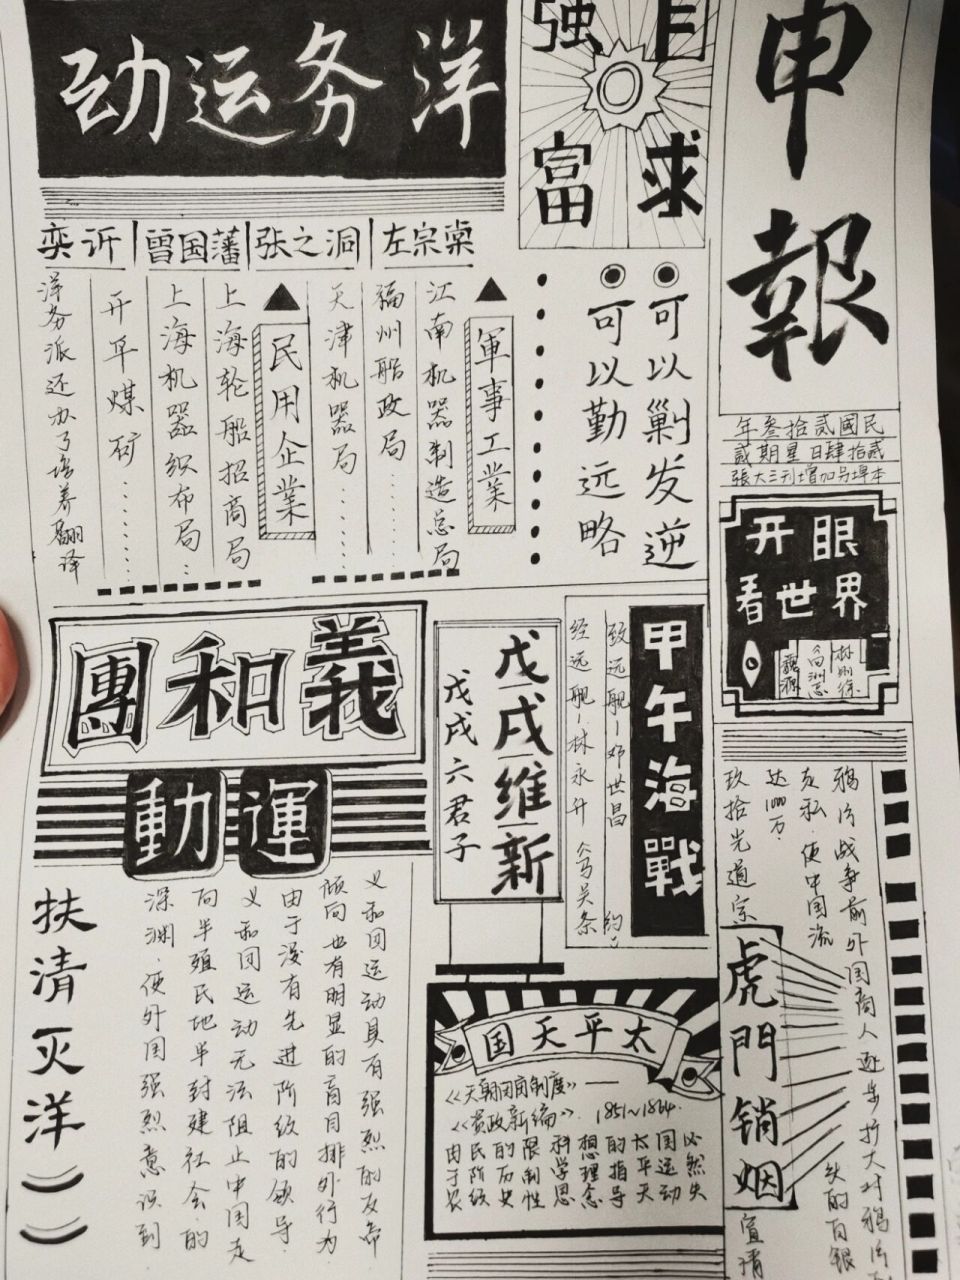 申報
民國貳拾叁年
貳拾肆日星期貳
本埠另加增刊三大張
自强
求富
可以剿发逆
可以勤远略
洋务运动
左宗棠
张之洞
曾国藩
奕䜣
軍事工業
江南机器制造总局
福州船政局
天津机器局……
民用企業
上海轮船招商局
上海机器织布局…
开平煤矿……
洋务派还办了培养翻译
开眼
看世界
林则徐
魏源
鸦片战争前外国商人逐步扩大对鸦片
走私·使中国流
失的白银
达100万·
玖拾光道宗
宣清
虎門销烟
甲午海戰
致远舰—邓世昌
经远舰—林永升
戊戌维新
戊戌六君子
義和團
運動
扶清灭洋
义和团运动具有强烈的反帝
倾向也有明显的盲目排外行为
由于没有先进阶级的领导·
义和团运动无法阻止中国走
向半殖民地半封建社会的
深渊·使外国强烈意识到
太平天国
《天朝田亩制度》——
《资政新编》· 1851~1864·
由于农
民阶级
的历史
限制性
科学思
想理念
的指导
太平天
国运动
必然失